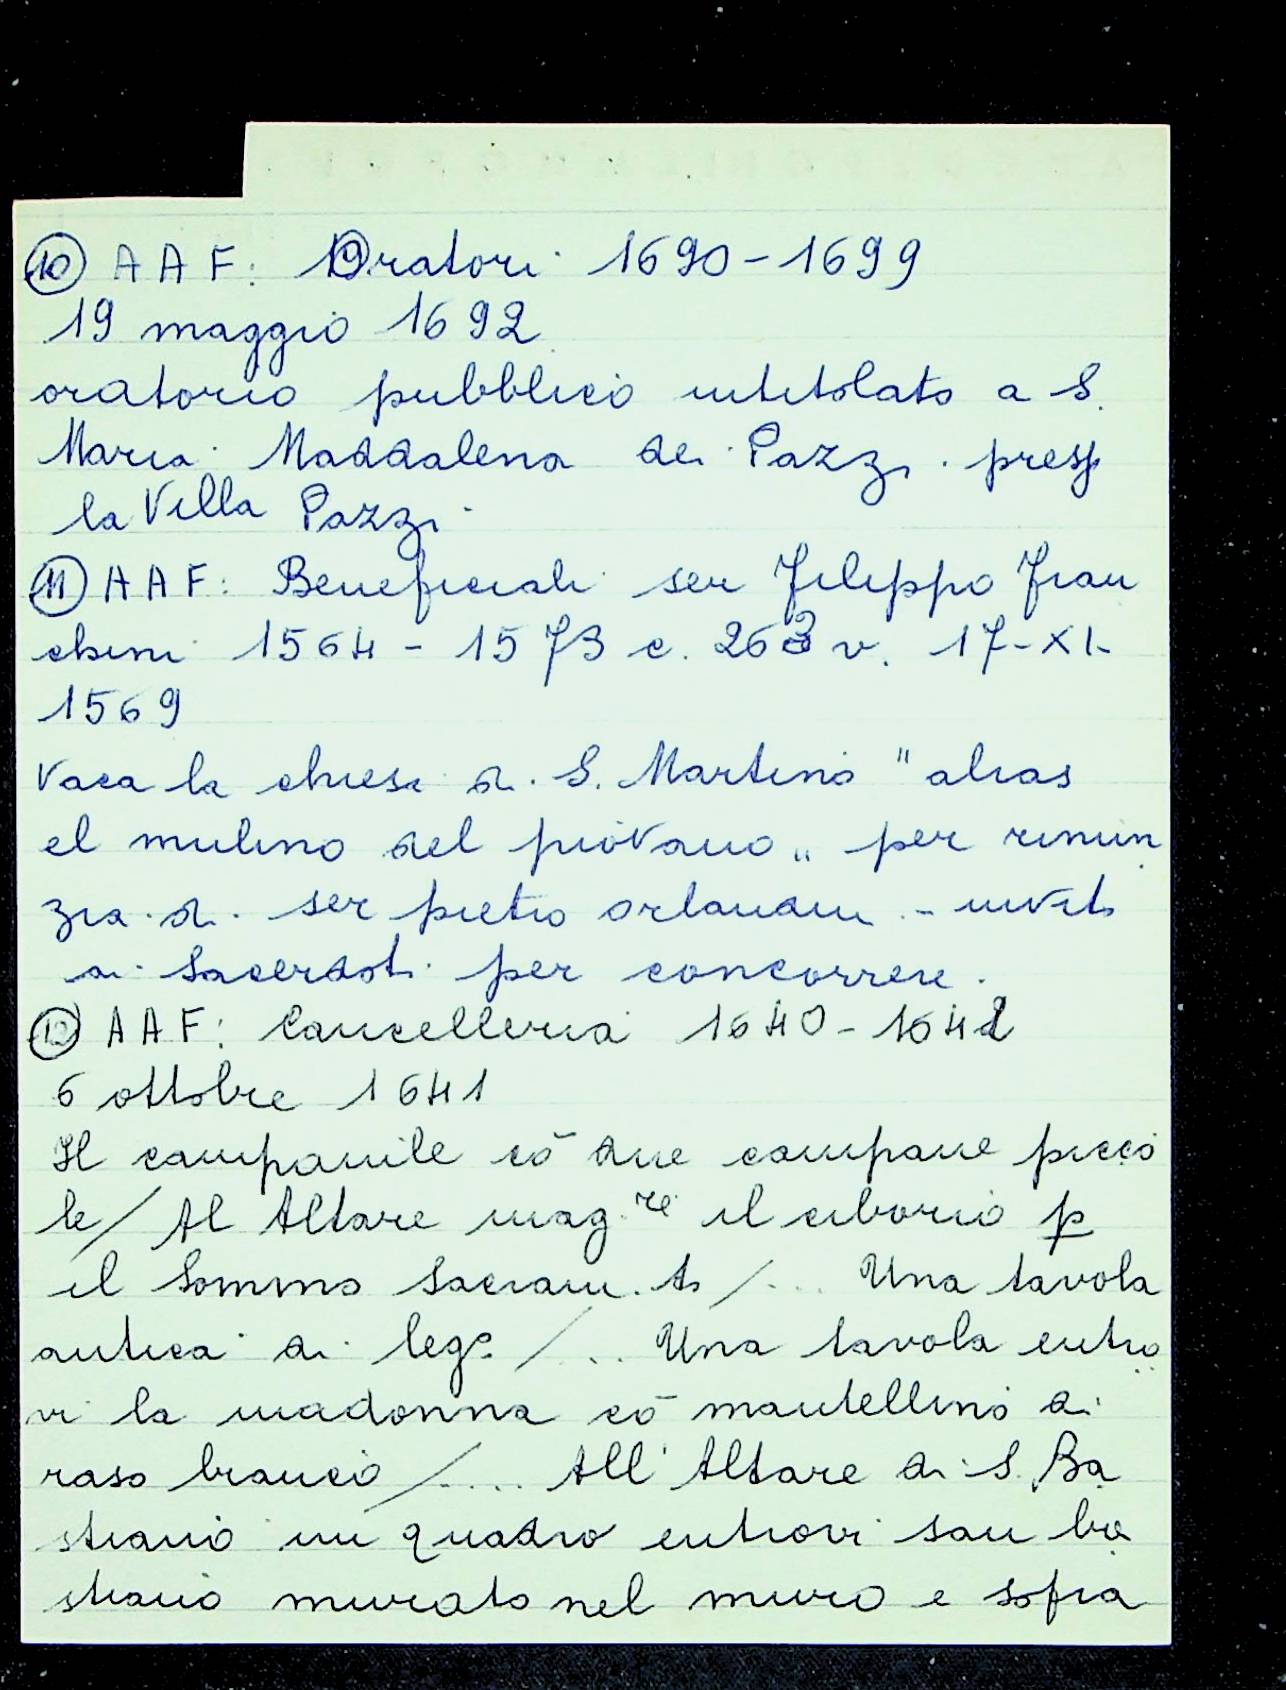 ⑩ A A F: Oratori 1690-1699
19 maggio 1692
oratorio pubblico intitolato a S.
Maria Maddalena dei Pazzi presso
la Villa Pazzi
⑪ A A F: Beneficiali ser Filippo Fran
chini 1564 - 1573 c. 263 v. 17-XI-
1569
Vaca la chiesa di S. Martino "alias
el mulino del piovano" per rinun
zia di ser pietro orlandini - invito
ai sacerdoti per concorrere.
⑫ A A F: Cancelleria 1640-1642
6 ottobre 1641
Il campanile cō due campane picco
le / Al Altare mag.re il ciborio p
il Sommo Sacram.to /... Una tavola
antica di leg.o /... Una tavola entro
vi la madonna cō mantellino di
raso bianco /.... All'Altare di S. Ba
stiano un quadro entrovi san ba
stiano murato nel muro e sopra